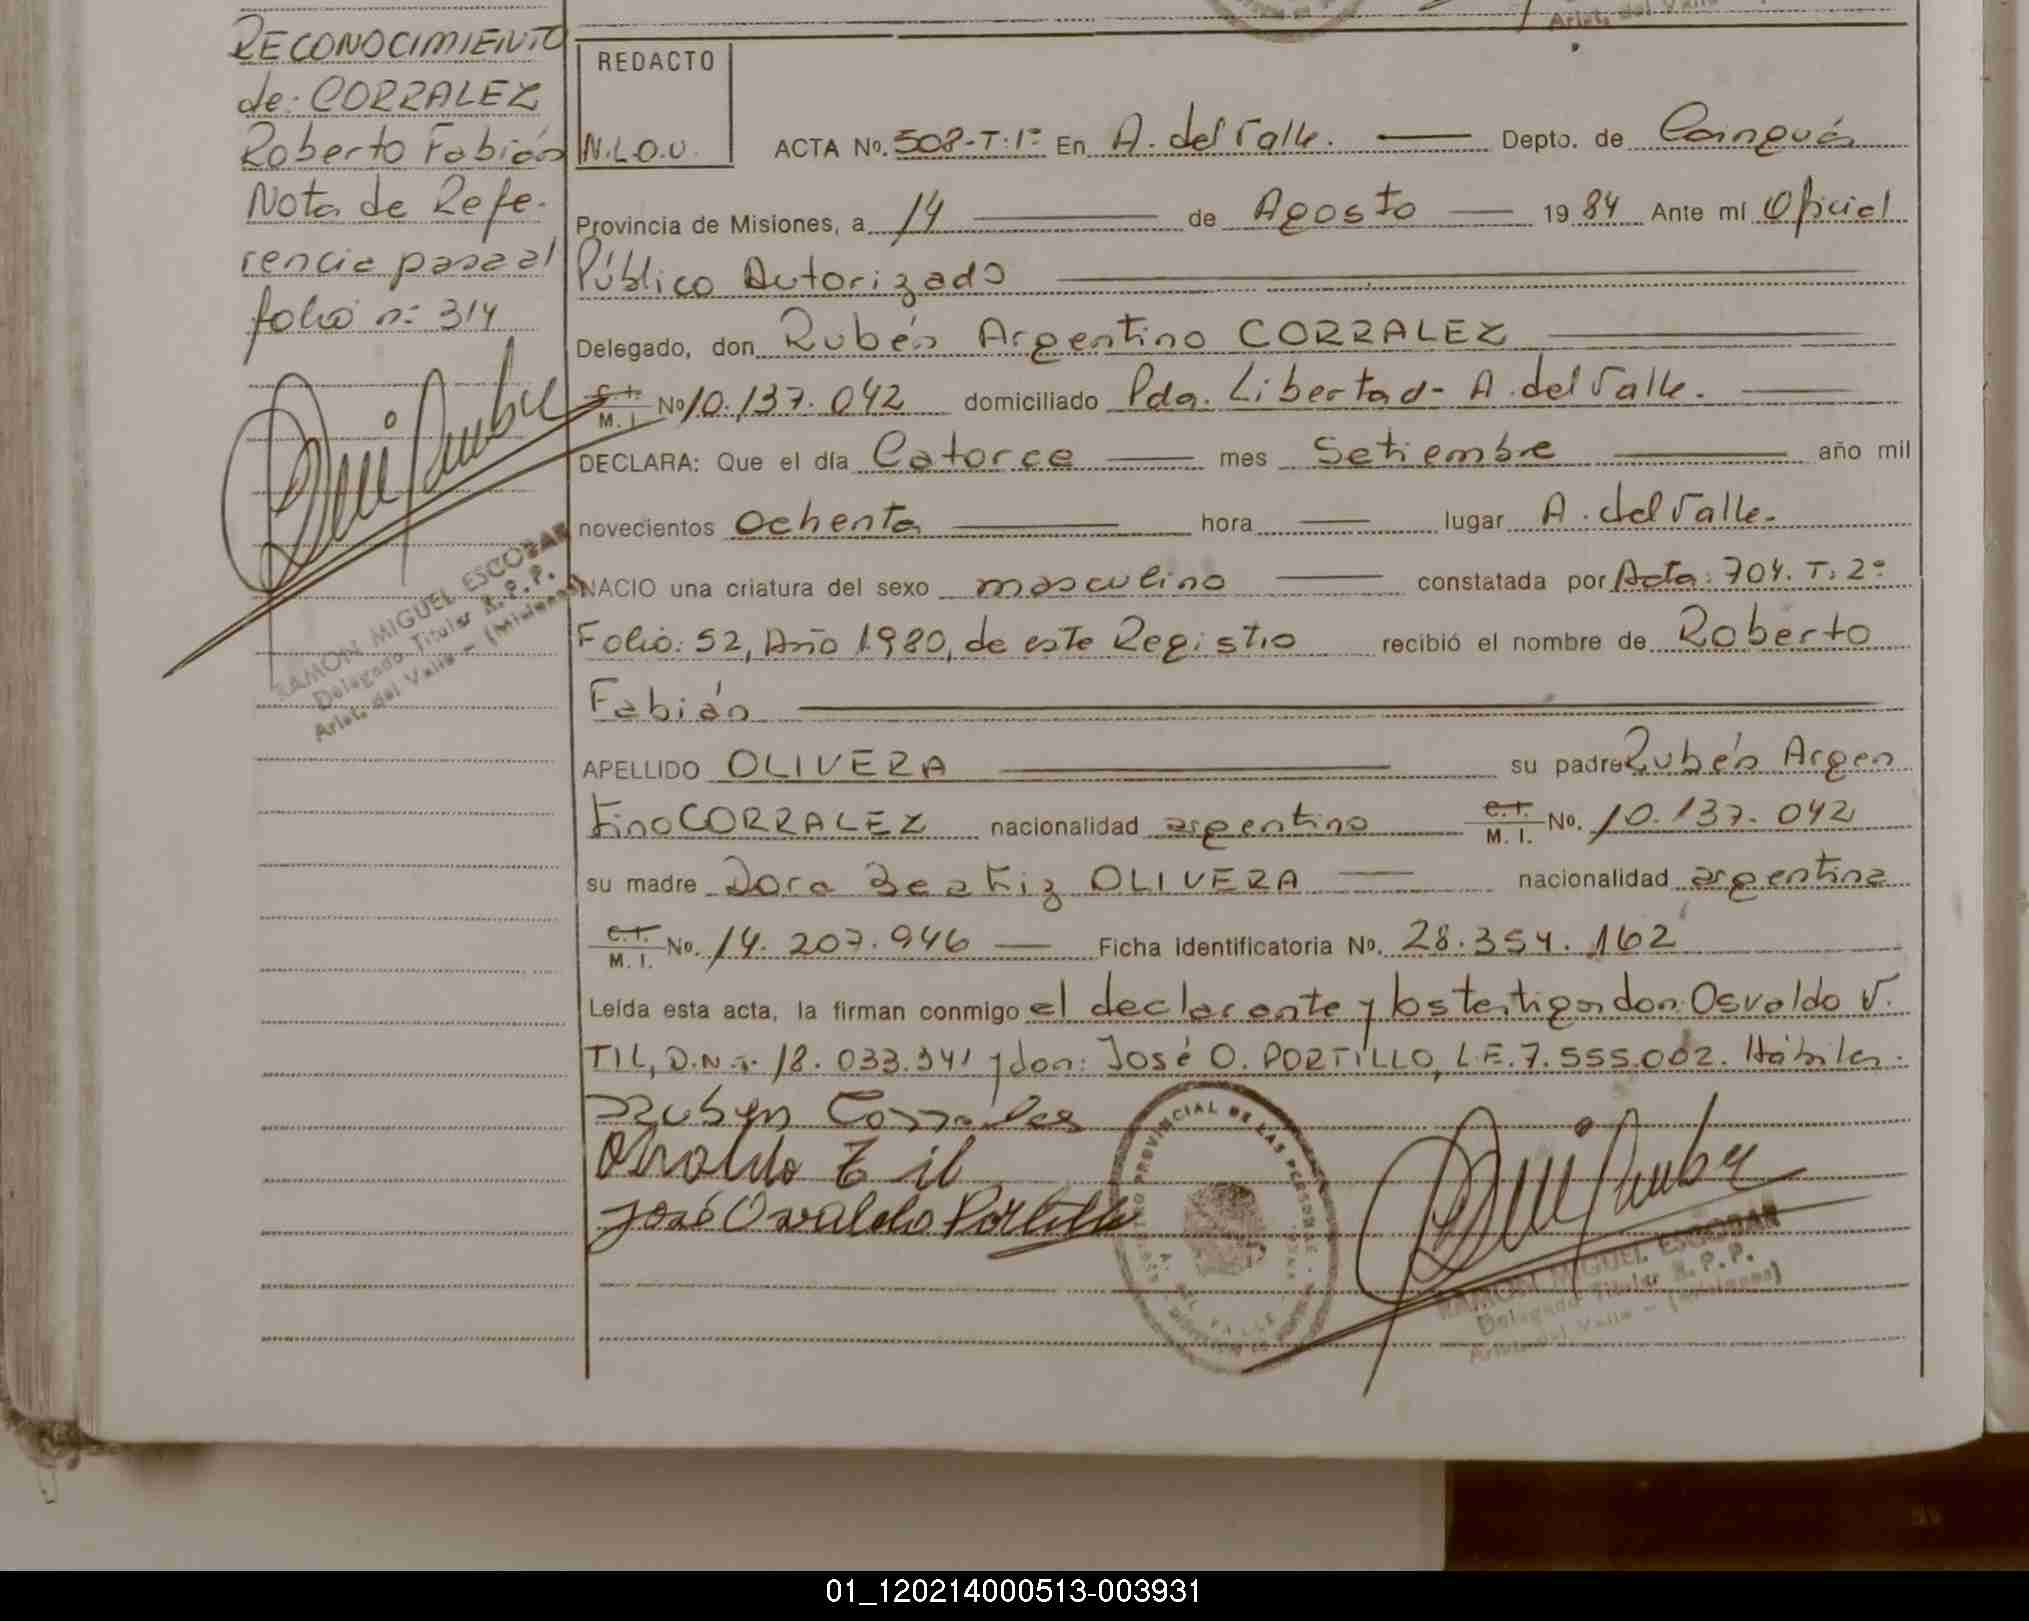 RECONOCIMIENTO
de: CORRALEZ
Roberto Fabián
Nota de Refe-
rencia pasa al
folio n: 314
RAMON MIGUEL ESCOBAR
Delegado Titular R. P. P.
Arist. del Valle - (Misiones)
REDACTO
N.L.O.U.
ACTA No. 508-T:1º En A. del Valle. Depto. de Cainguás
Provincia de Misiones, a 14 de Agosto 1984 Ante mí Oficial
Público Autorizado
Delegado, don Rubén Argentino CORRALEZ
C.I. M. I. No 10.137.042 domiciliado Pda. Libertad- A. del Valle.
DECLARA: Que el día Catorce mes Setiembre año mil
novecientos Ochenta hora lugar A. del Valle.
NACIO una criatura del sexo masculino constatada por Acta: 704. T: 2º
Folio: 52, Año 1980, de este Registro recibió el nombre de Roberto
Fabián
APELLIDO OLIVERA su padre Rubén Argen
tino CORRALEZ nacionalidad argentino C.I. M. I. No. 10.137.042
su madre Dora Beatriz OLIVERA nacionalidad argentina
C.I. M. I. No. 14.207.946 Ficha identificatoria No. 28.354.162
Leída esta acta, la firman conmigo el declarante y los testigos don: Osvaldo V.
TIL, D.N.I. 18.033.341 y don: José O. PORTILLO, L.E. 7.555.002. Hábiles.
Ruben Corrales
Osvaldo Til
José Osvaldo Portillo
PROVINCIAL DE LAS PERSONAS
A. DEL VALLE
RAMON MIGUEL ESCOBAR
Delegado Titular R. P. P.
Arist. del Valle - (Misiones)
01_120214000513-003931